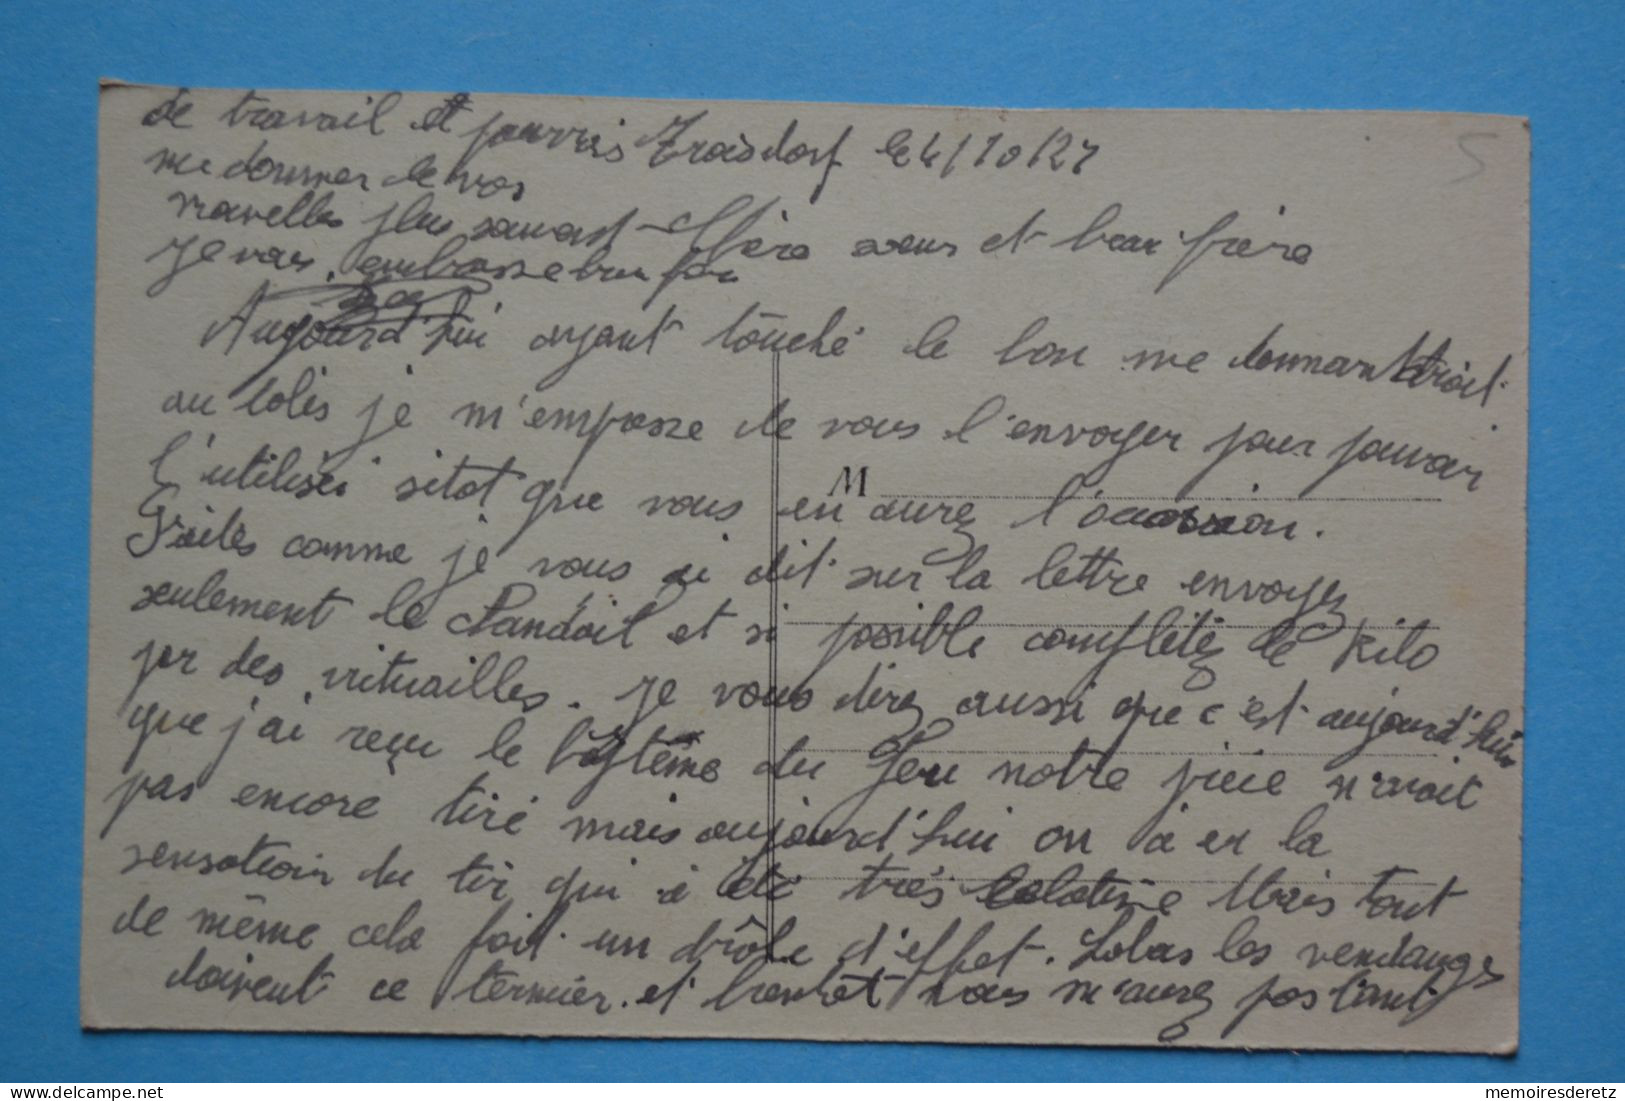 Troisdorf le 4/10/27
Chère soeur et beau frère
Aujourd'hui ayant touché le bon me donnant droit
au colis je m'empresse de vous l'envoyer pour pouvoir
l'utiliser sitot que vous en aurez l'occasion.
M
Faites comme je vous ai dit sur la lettre envoyez
seulement le et si possible complétez le kilo
par des vituailles. Je vous direz aussi que c'est aujourd'hui
que j'ai reçu le baptême du feu notre pièce n'avait
pas encore tiré mais aujourd'hui on à eu la
sensation du tir qui à été très Mais tout
de même cela fait un drôle d'effet. Labas les vendanges
doivent ce termier et bientôt vous n'aurez pas tant
de travail et pourris
me donner de vos
nouvelles plus souvent
Je vais embrasse bien fou
5
memoiresderetz